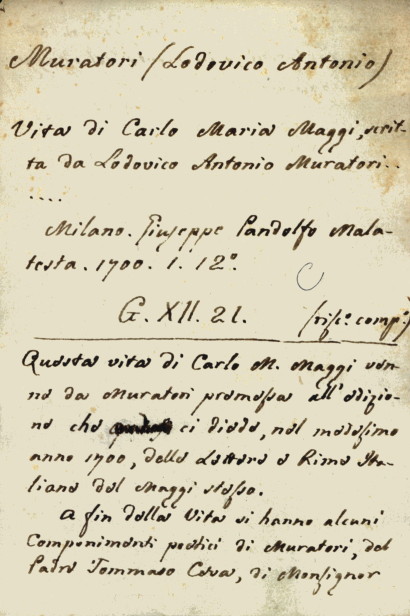 Muratori (Lodovico Antonio)
Vita di Carlo Maria Maggi, scrit-
ta da Lodovico Antonio Muratori..
....
Milano. Giuseppe Pandolfo Mala-
testa. 1700. 1. 12º.
G. XII. 21.
Questa vita di Carlo M. Maggi ven-
ne da Muratori premessa all'edizio-
ne che ci diede, nel medesimo
anno 1700, delle Lettere e Rime Ita-
liane del Maggi stesso.
A fin della Vita si hanno alcuni
Componimenti poetici di Muratori, del
Padre Tommaso Ceva, di Monsignor